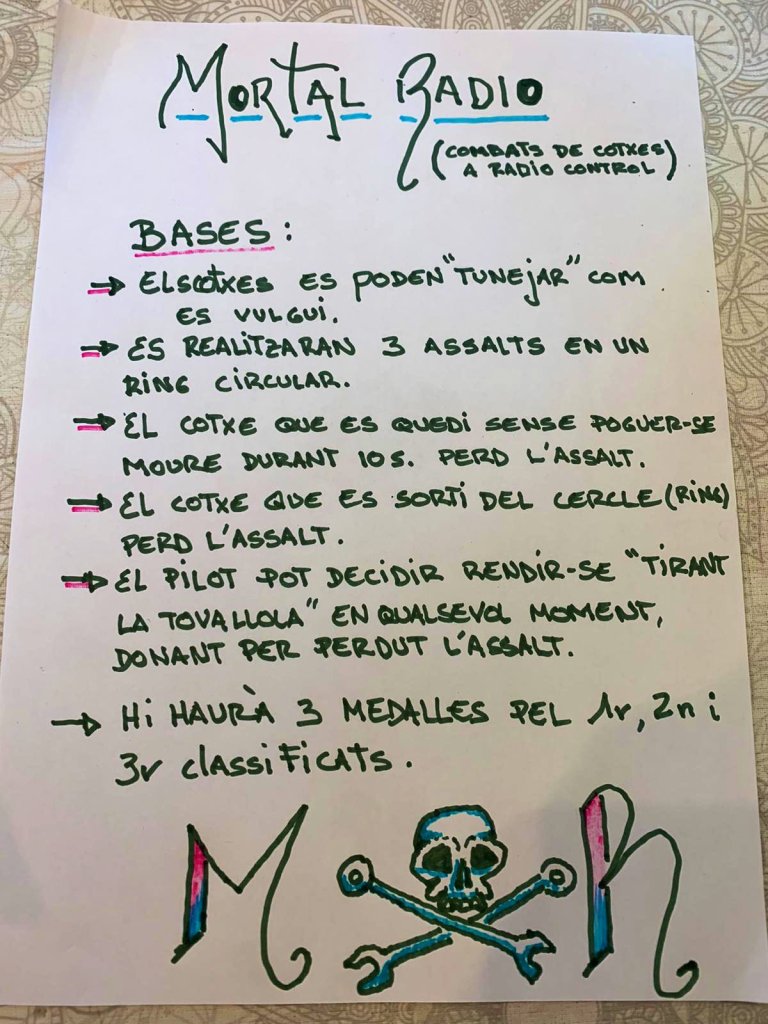 MORTAL RADIO
(COMBATS DE COTXES
A RADIO CONTROL)
BASES:
→ ELS COTXES ES PODEN "TUNEJAR" COM
ES VULGUI.
→ ES REALITZARAN 3 ASSALTS EN UN
RING CIRCULAR.
→ EL COTXE QUE ES QUEDI SENSE POGUER-SE
MOURE DURANT 10 S. PERD L'ASSALT.
→ EL COTXE QUE ES SORTI DEL CERCLE (RING)
PERD L'ASSALT.
→ EL PILOT POT DECIDIR RENDIR-SE "TIRANT
LA TOVALLOLA" EN QUALSEVOL MOMENT,
DONANT PER PERDUT L'ASSALT.
→ HI HAURÀ 3 MEDALLES PEL 1r, 2n i
3r CLASSIFICATS.
M R